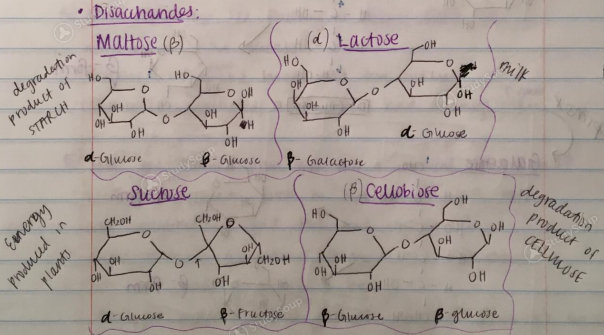 • Disaccharides:
Maltose (β)
degradation
product of
STARCH
HO
HO
O
O
OH
OH
OH
O
OH
OH
OH
H
OH
α-Glucose
β-Glucose
(α) Lactose
milk
OH
HO
O
O
OH
OH
OH
O
OH
OH
OH
OH
α-Glucose
β-Galactose
Sucrose
Energy
produced in
plants
CH₂OH
CH₂OH
O
O
OH
OH
OH
O
OH
OH
CH₂OH
α-Glucose
β-Fructose
(β) Cellobiose
degradation
product of
CELLULOSE
HO
HO
O
O
OH
OH
OH
O
OH
OH
OH
β-Glucose
β-glucose